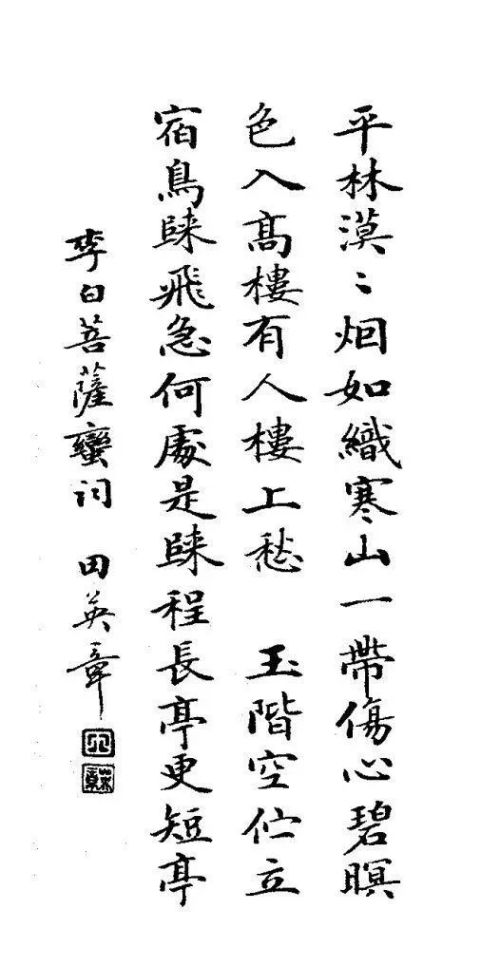 平林漠〻烟如織寒山一帶傷心碧暝
色入高樓有人樓上愁 玉階空伫立
宿鳥歸飛急何處是歸程長亭更短亭
李白菩薩蠻词 田英章